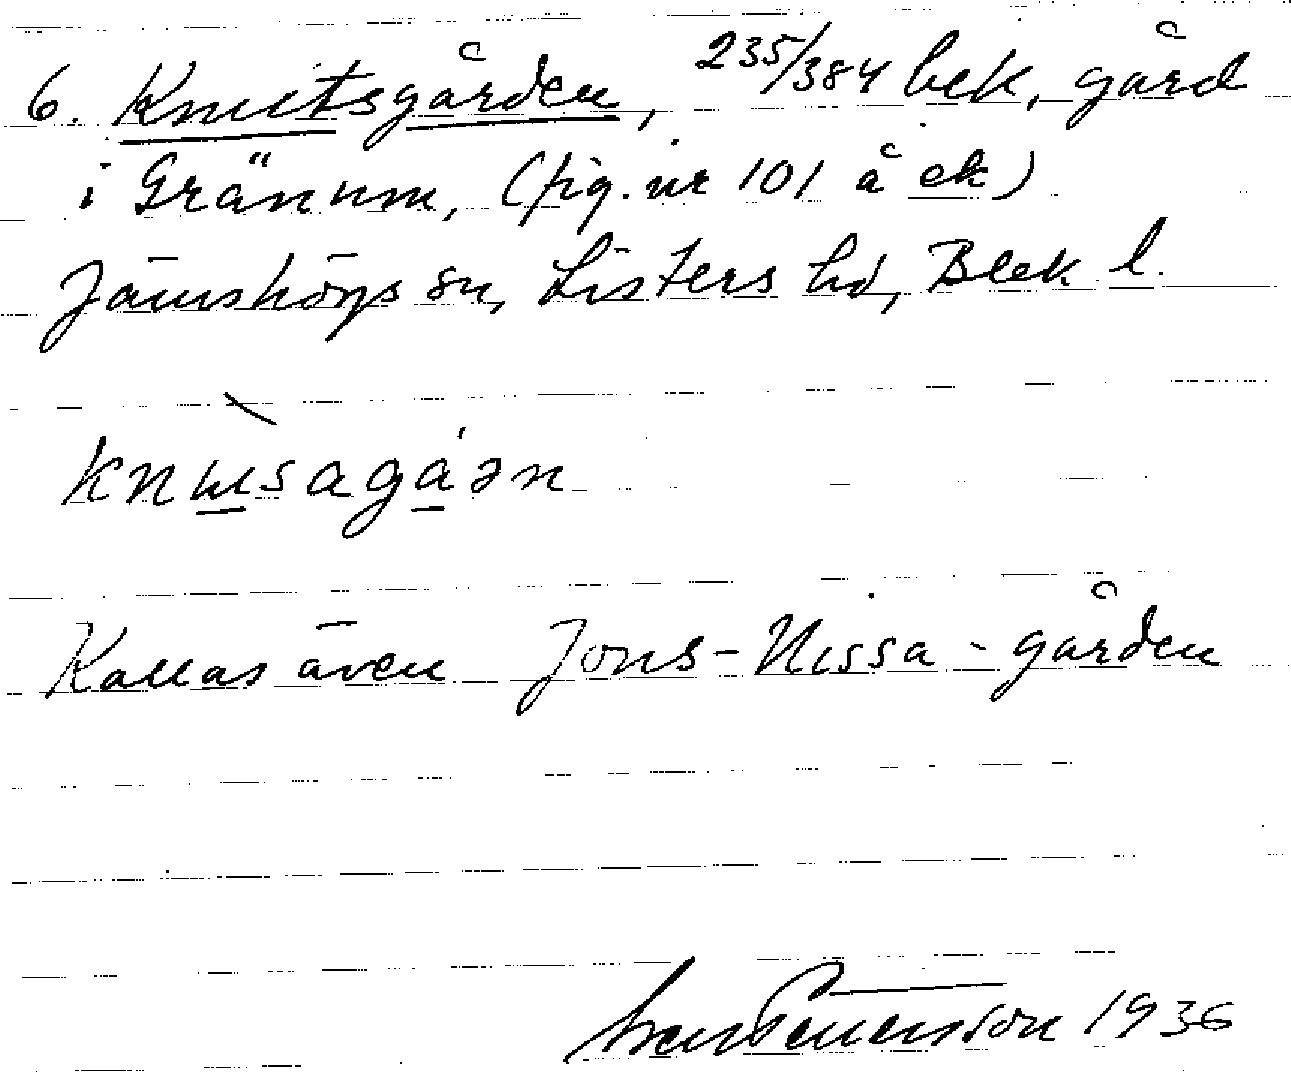 6. Knutsgården, 235/384 bek, gård
i Gränum, (fig. nr 101 å ek)
Jämshögs sn, Listers hd, Blek l.
Kallas även Jöns-Nissa-gården
1936